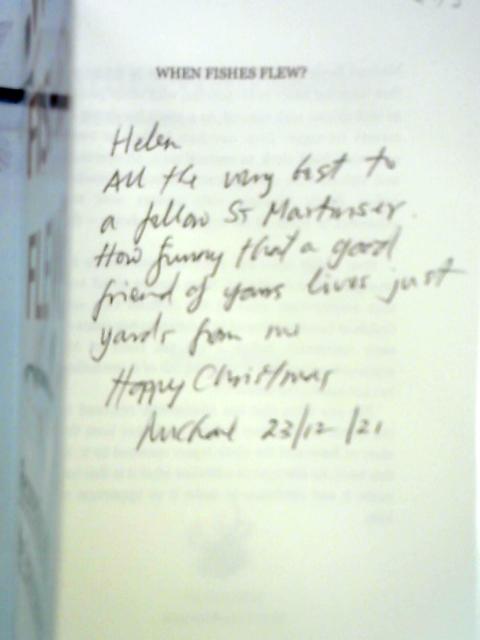 WHEN FISHES FLEW?
Helen
All the very best to
a fellow St Martinser.
How funny that a good
friend of yours lives just
yards from me
Happy Christmas
Michael 23/12/21